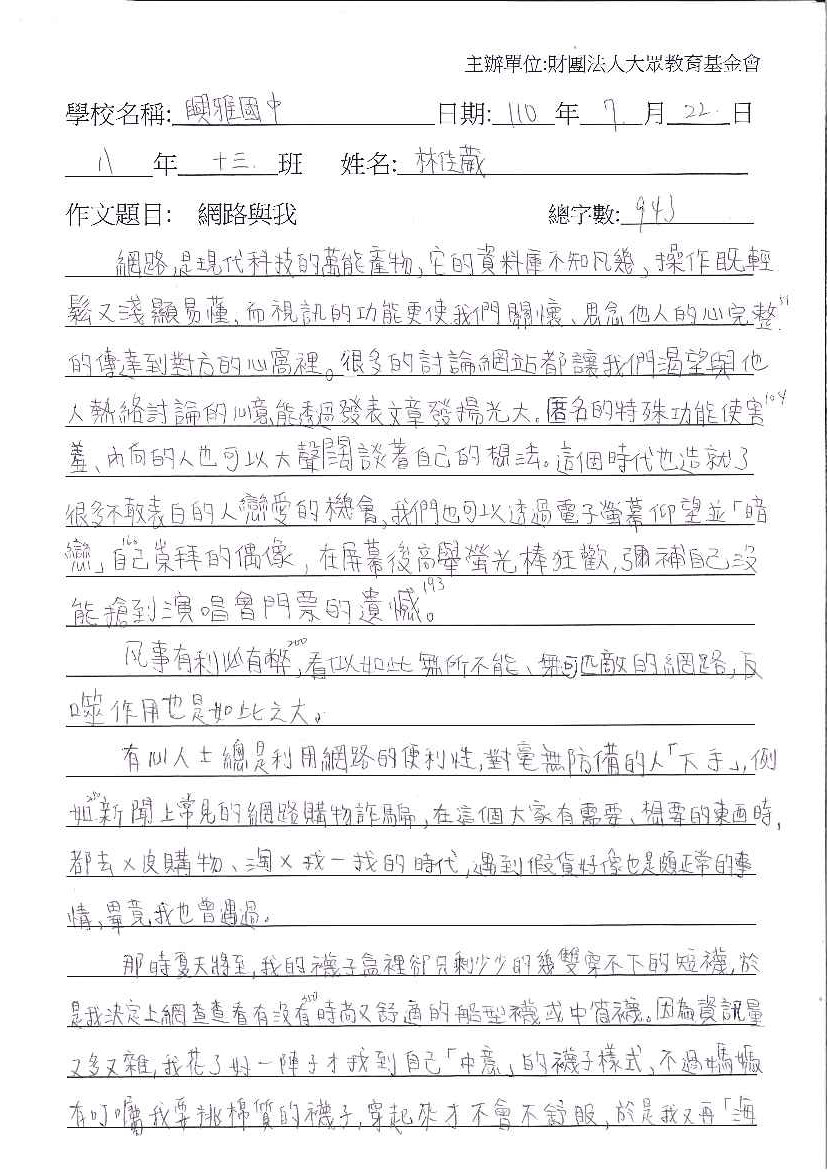 主辦單位:財團法人大眾教育基金會
學校名稱: 興雅國中 日期: 110 年 7 月 22 日
八 年 十三 班 姓名: 林佳葳
作文題目: 網路與我 總字數: 943
網路,是現代科技的萬能產物,它的資料庫不知凡幾,操作既輕
鬆又淺顯易懂,而視訊的功能更使我們關懷、思念他人的心完整 51
的傳達到對方的心窩裡。很多的討論網站都讓我們渴望與他
人熱絡討論的心意能透過發表文章發揚光大。匿名的特殊功能使害 104
羞、內向的人也可以大聲闊談著自己的想法。這個時代也造就了
很多不敢表白的人戀愛的機會,我們也可以透過電子螢幕仰望並「暗
戀」自己崇拜的偶像,在屏幕後高舉螢光棒狂歡,彌補自己沒
能搶到演唱會門票的遺憾。 193
凡事有利必有弊, 200 看似如此無所不能、無可匹敵的網路,反
噬作用也是如此之大。
有心人士總是利用網路的便利性,對毫無防備的人「下手」,例
如新聞上常見的網路購物詐騙,在這個大家有需要、想要的東西時,
都去×皮購物、淘×找一找的時代,遇到假貨好像也是頗正常的事
情,畢竟,我也曾遇過。
那時夏天將至,我的襪子盒裡卻只剩少少的幾雙穿不下的短襪,於
是我決定上網查查看有沒有時尚又舒適的船型襪或中筒襪。因為資訊量
又多又雜,我花了好一陣子才找到自己「中意」的襪子樣式,不過媽媽
有叮囑我要挑棉質的襪子,穿起來才不會不舒服,於是我又再「海